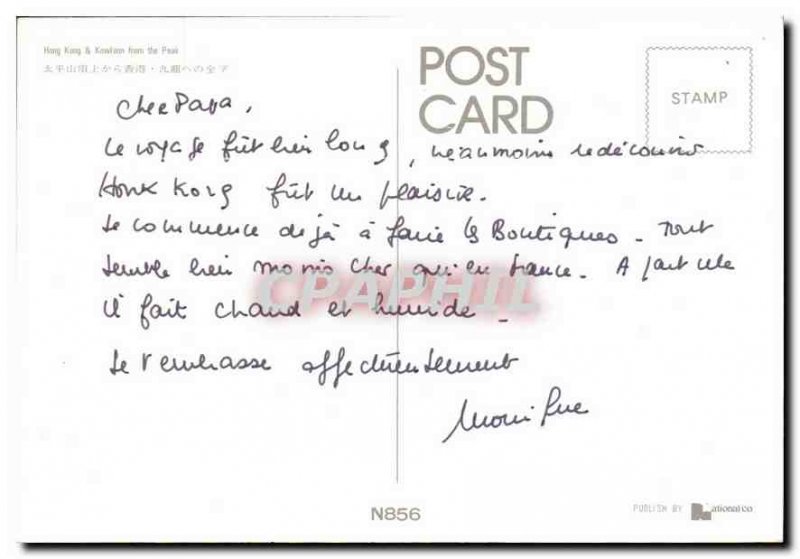 Hong Kong & Kowloon from the Peak
太平山頂上から香港・九龍への全下
POST
CARD
STAMP
Cher Papa,
Le voyage fût bien long, neanmoins redécouvrir
Honk Kong fût un plaisir.
Je commence dejà à faire les Boutiques - Tout
semble bien moins cher qu'en France. A part cela
il fait chaud et humide -
Je t'embrasse affectueusement
Monique
CPAPHIL
N856
PUBLISH BY National co.